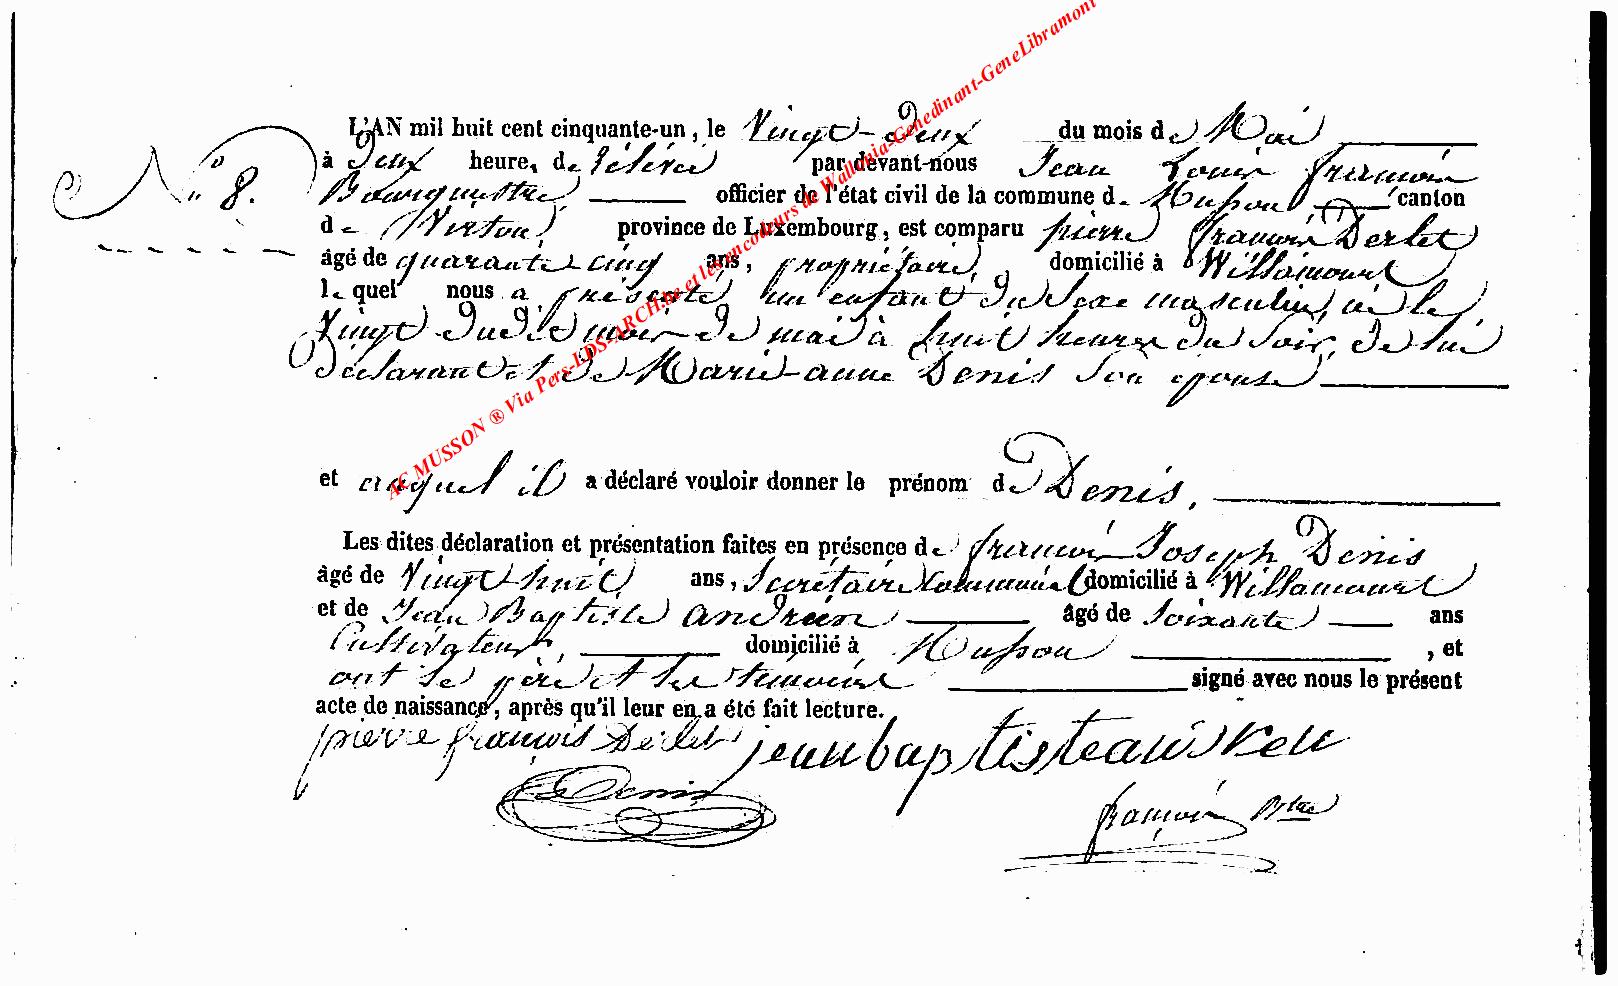 L'AN mil huit cent cinquante-un, le Vingt-Deux du mois de Mai
N° 8.
à Deux heure, de relevée par devant-nous Jean Louis françois
Bourguestre, officier de l'état civil de la commune de Musson, canton
de Virton, province de Luxembourg, est comparu pierre françois Derlet
âgé de quarante-cinq ans, propriétaire, domicilié à Willancourt
le quel nous a présenté un enfant du sexe masculin, né le
Vingt dudit mois de mai à huit heures du soir, de lui
déclarant et de Marie-anne Denis son épouse
et auquel il a déclaré vouloir donner le prénom de Denis,
Les dites déclaration et présentation faites en présence de françois Joseph Denis
âgé de Vingt huit ans, Secrétaire Communal domicilié à Willancourt
et de Jean Baptiste andrien âgé de soixante ans
Cultivateur, domicilié à Musson, et
ont le père et les témoins signé avec nous le présent
acte de naissance, après qu'il leur en a été fait lecture.
pierre françois Derlet jean baptiste
Denis
françois
AC MUSSON ® Via Pers-LDS-ARCH.be et les encodeurs de Wallonia-Genedinant-GeneLibramont